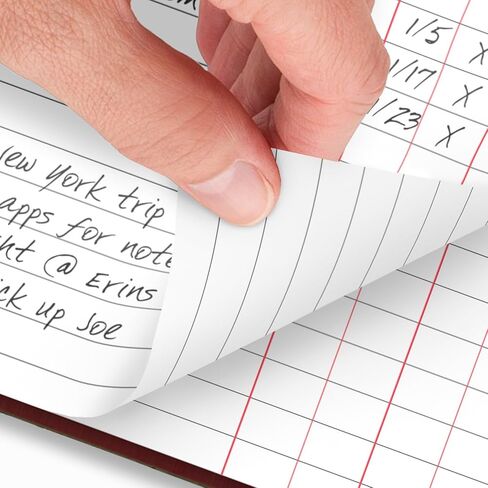 1/5 X
1/17 X
1/23 X
New York trip
apps for note
@ Erins
up Joe